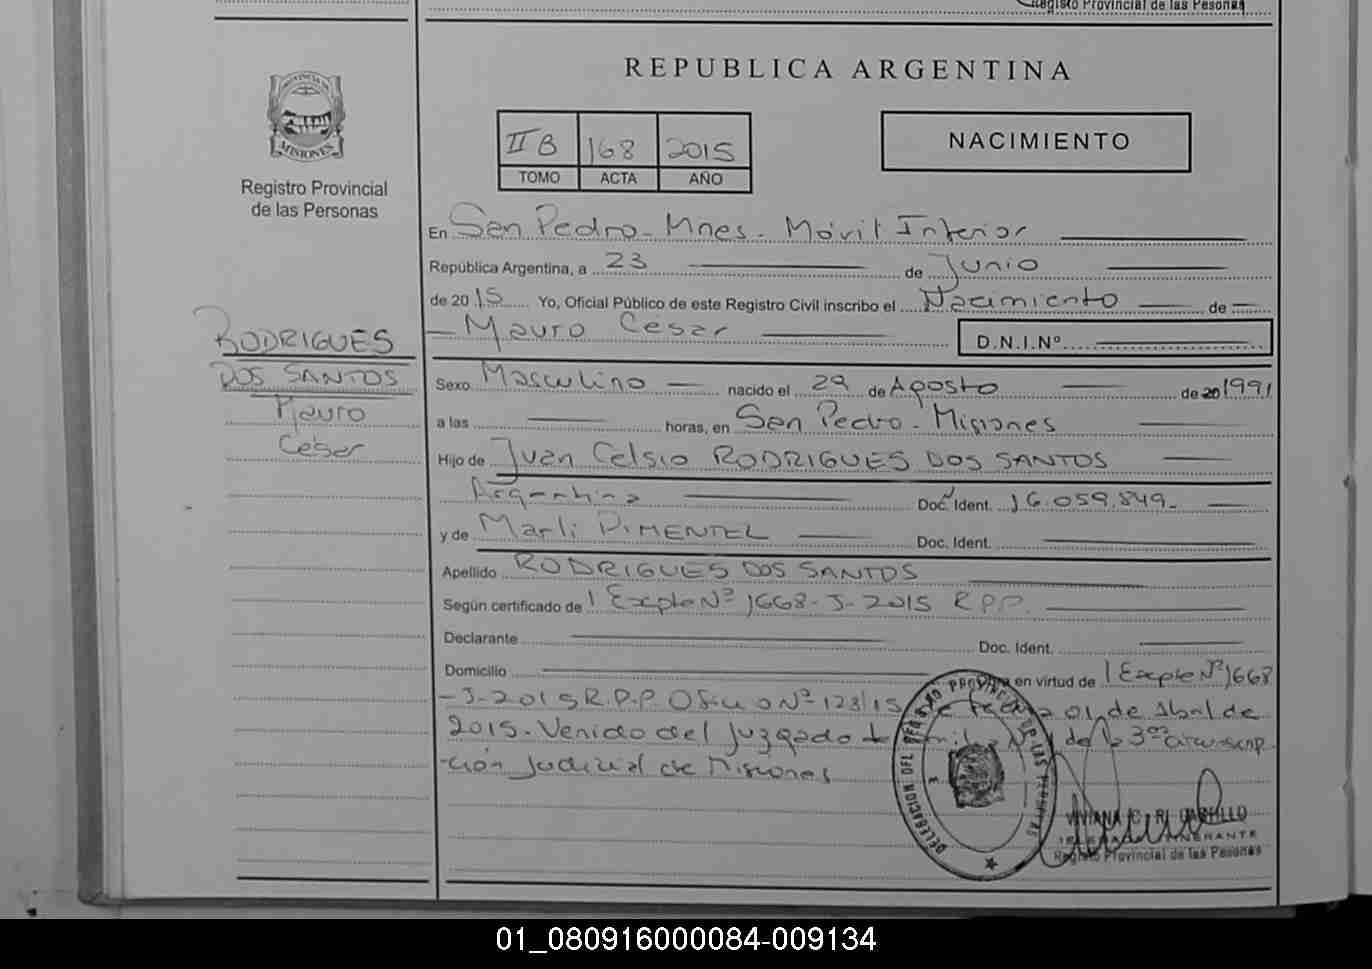 Registro Provincial de las Pesonas
REPUBLICA ARGENTINA
PROVINCIA DE
MISIONES
Registro Provincial
de las Personas
II B 168 2015
TOMO ACTA AÑO
NACIMIENTO
En San Pedro - Mnes. Móvil Interior
República Argentina, a 23 de Junio
de 2015 Yo, Oficial Público de este Registro Civil inscribo el Nacimiento de
Mauro César
D.N.I.Nº
RODRIGUES
DOS SANTOS
Mauro
César
Sexo Masculino nacido el 29 de Agosto de 20 1991
a las horas, en San Pedro - Misiones
Hijo de Juan Celsio RODRIGUES DOS SANTOS
Argentina Doc. Ident. 16.059.849.
y de Marli PIMENTEL Doc. Ident.
Apellido RODRIGUES DOS SANTOS
Según certificado de 1 Expte Nº 1668-J-2015 R.P.P.
Declarante Doc. Ident.
Domicilio en virtud de 1 Expte Nº 1668
-J-2015 R.P.P. Oficio Nº 123/15 de fecha 01 de Abril de
2015. Venido del Juzgado de Familia Nº 1 de la 3º circunscrip
-ción Judicial de Misiones
DELEGACION DEL REGISTRO PROVINCIAL DE LAS PERSONAS
VIVIANA C. R. CASTILLO
Registro Provincial de las Pesonas
01_080916000084-009134